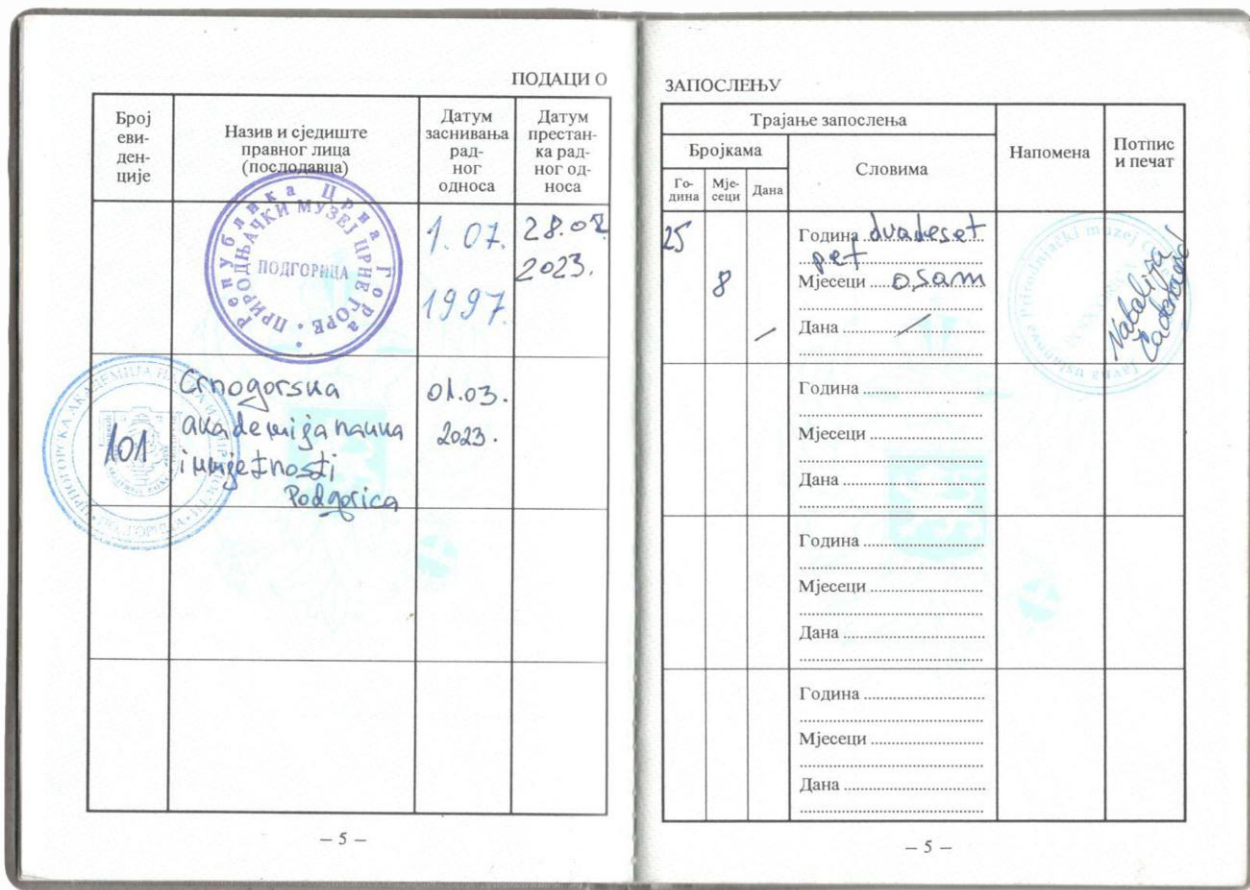 ПОДАЦИ О
Број
еви-
ден-
ције
Назив и сједиште
правног лица
(послодавца)
Датум
заснивања
рад-
ног
односа
Датум
престан-
ка рад-
ног од-
носа
Република Црна Гора
ПРИРОДЊАЧКИ МУЗЕЈ ЦРНЕ ГОРЕ
ПОДГОРИЦА
1. 07.
1997.
28.02
2023.
101
Crnogorska
akademija nauka
i umjetnosti
Podgorica
01.03.
2023.
– 5 –
ЗАПОСЛЕЊУ
Трајање запослења
Бројкама
Го-
дина
Мје-
сеци
Дана
Словима
Напомена
Потпис
и печат
25
8
–
Година dvadeset
pet
Мјесеци osam
Дана /
Natalija
Година
Мјесеци
Дана
Година
Мјесеци
Дана
Година
Мјесеци
Дана
– 5 –